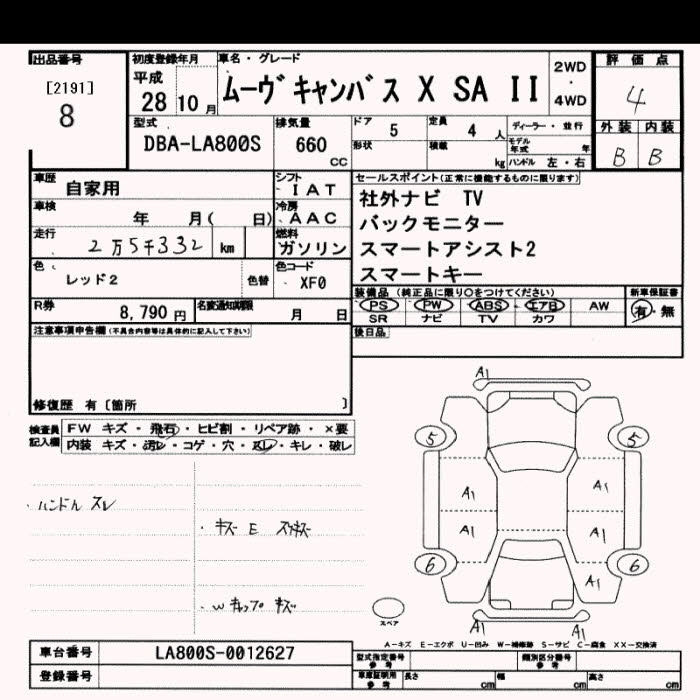 出品番号 初度登録年月 車名・グレード 評価点
[2191] 平成 ムーヴキャンバス X SA II 2WD・4WD 4
8 28 10月
型式 排気量 ドア 5 定員 4人 ディーラー・並行 外装 内装
DBA-LA800S 660 CC 形状 積載 kg モデル年式 年 ハンドル 左・右 B B
車歴 自家用 シフト IAT セールスポイント(正常に機能するものに限ります)
車検 年 月( 日) 冷房 AAC 社外ナビ TV
走行 2万5千332 km 燃料 ガソリン バックモニター
スマートアシスト2
色 レッド2 色替 色コード XF0 スマートキー
装備品(純正品に限り○をつけてください) 新車保証書
R券 8,790円 名変通知期限 月 日 PS PW ABS エアB AW 有・無
SR ナビ TV カワ
注意事項申告欄(不具合内容等は具体的に記入して下さい) 後日品
修復歴 有〔箇所 〕
検査員記入欄 FW キズ・飛石・ヒビ割・リペア跡・×要
内装 キズ・汚レ・コゲ・穴・スレ・キレ・破レ
A1
5 5
・ハンドル スレ
A1 A1
・キズ E スリキズ
A1 A1
6 6
A1
・W キャップ キズ
スペア
A1 A1
A-キズ E-エクボ U-凹み W-補修跡 S-サビ C-腐食 XX-交換済
車台番号 LA800S-0012627 型式指定番号 参考 類別区分番号 参考
登録番号 車庫証明用 参考 長さ cm 幅 cm 高さ cm